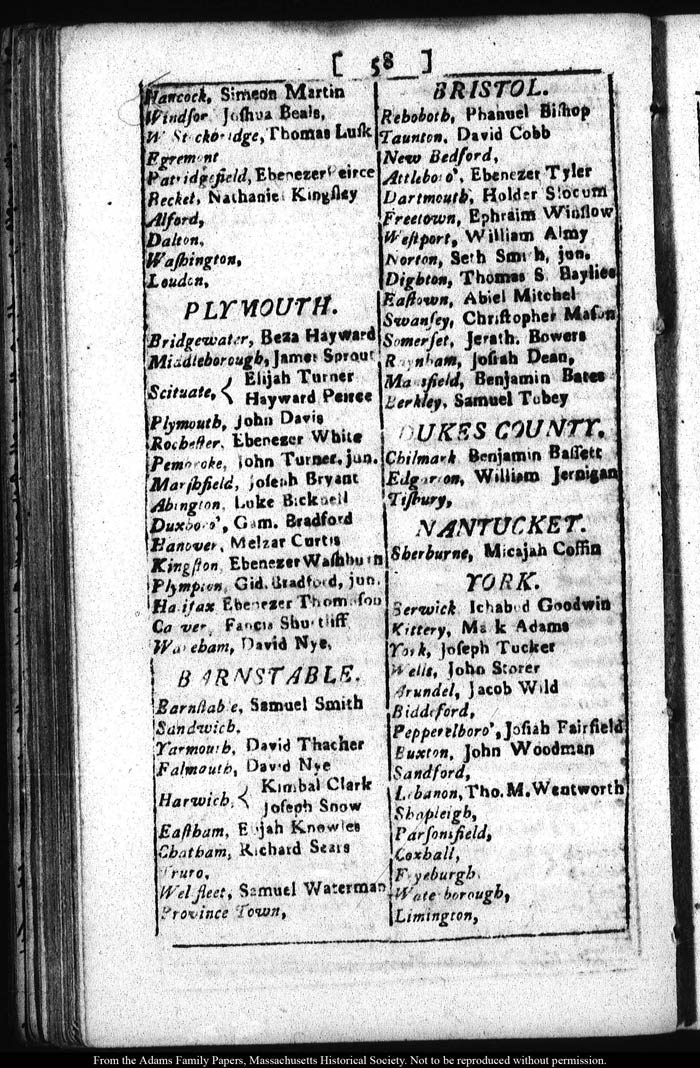 [ 58 ]
Hancock, Simeon Martin
Windsor, Joshua Beals,
W Stockbridge, Thomas Lusk
Egremont
Patridgefield, Ebenezer Peirce
Becket, Nathaniel Kingſley
Alford,
Dalton,
Waſhington,
Loudon,
PLYMOUTH.
Bridgewater, Beza Hayward
Middleborough, James Sprout
Scituate, { Elijah Turner
Hayward Peirce
Plymouth, John Davis
Rocheſter, Ebenezer White
Pembroke, John Turner, jun.
Marſhfield, Joſeph Bryant
Abington, Luke Bicknell
Duxboro', Gam. Bradford
Hanover, Melzar Curtis
Kingſton, Ebenezer Waſhburn
Plympton, Gid. Bradford, jun.
Halifax Ebenezer Thomſon
Carver, Fancis Shurtliff
Wareham, David Nye,
BARNSTABLE.
Barnſtable, Samuel Smith
Sandwich.
Yarmouth, David Thacher
Falmouth, David Nye
Harwich, { Kimbal Clark
Joſeph Snow
Eaſtham, Elijah Knowles
Chatham, Richard Sears
Truro,
Welfleet, Samuel Waterman
Province Town,
BRISTOL.
Rehoboth, Phanuel Biſhop
Taunton, David Cobb
New Bedford,
Attleboro', Ebenezer Tyler
Dartmouth, Holder Slocum
Freetown, Ephraim Winſlow
Weſtport, William Almy
Norton, Seth Smith, jun.
Dighton, Thomas S. Baylies
Eaſtown, Abiel Mitchel
Swanſey, Chriſtopher Maſon
Somerſet, Jerath. Bowers
Raynham, Joſiah Dean,
Mansfield, Benjamin Bates
Berkley, Samuel Tobey
DUKES COUNTY.
Chilmark Benjamin Baſſett
Edgarton, William Jernigan
Tiſbury,
NANTUCKET.
Sherburne, Micajah Coffin
YORK.
Berwick Ichabod Goodwin
Kittery, Mark Adams
York, Joſeph Tucker
Wells, John Storer
Arundel, Jacob Wild
Biddeford,
Pepperelboro', Joſiah Fairfield
Buxton, John Woodman
Sandford,
Lebanon, Tho. M. Wentworth
Shapleigh,
Parſonsfield,
Coxhall,
Fryeburgh.
Waterborough,
Limington,
From the Adams Family Papers, Massachusetts Historical Society. Not to be reproduced without permission.